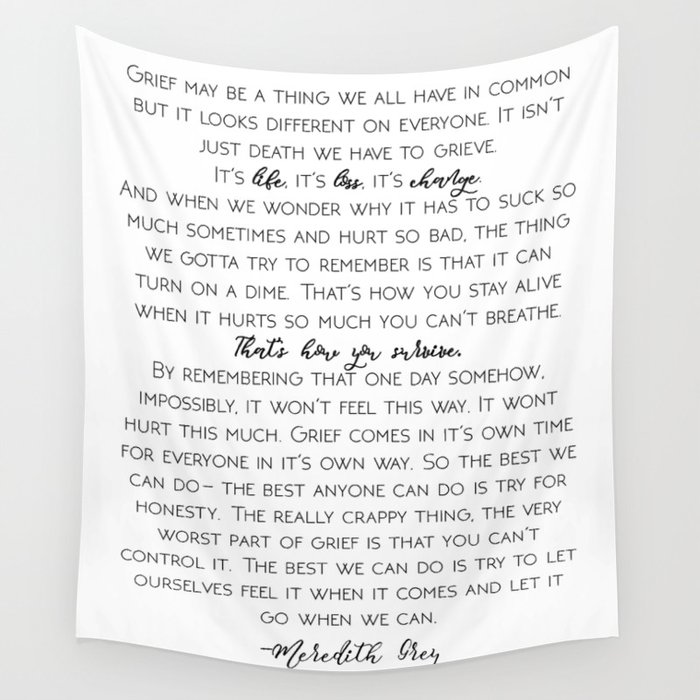 GRIEF MAY BE A THING WE ALL HAVE IN COMMON
BUT IT LOOKS DIFFERENT ON EVERYONE. IT ISN'T
JUST DEATH WE HAVE TO GRIEVE.
IT'S life, IT'S loss, IT'S change.
AND WHEN WE WONDER WHY IT HAS TO SUCK SO
MUCH SOMETIMES AND HURT SO BAD, THE THING
WE GOTTA TRY TO REMEMBER IS THAT IT CAN
TURN ON A DIME. THAT'S HOW YOU STAY ALIVE
WHEN IT HURTS SO MUCH YOU CAN'T BREATHE.
That's how you survive.
BY REMEMBERING THAT ONE DAY SOMEHOW,
IMPOSSIBLY, IT WON'T FEEL THIS WAY. IT WONT
HURT THIS MUCH. GRIEF COMES IN IT'S OWN TIME
FOR EVERYONE IN IT'S OWN WAY. SO THE BEST WE
CAN DO- THE BEST ANYONE CAN DO IS TRY FOR
HONESTY. THE REALLY CRAPPY THING, THE VERY
WORST PART OF GRIEF IS THAT YOU CAN'T
CONTROL IT. THE BEST WE CAN DO IS TRY TO LET
OURSELVES FEEL IT WHEN IT COMES AND LET IT
GO WHEN WE CAN.
-Meredith Grey